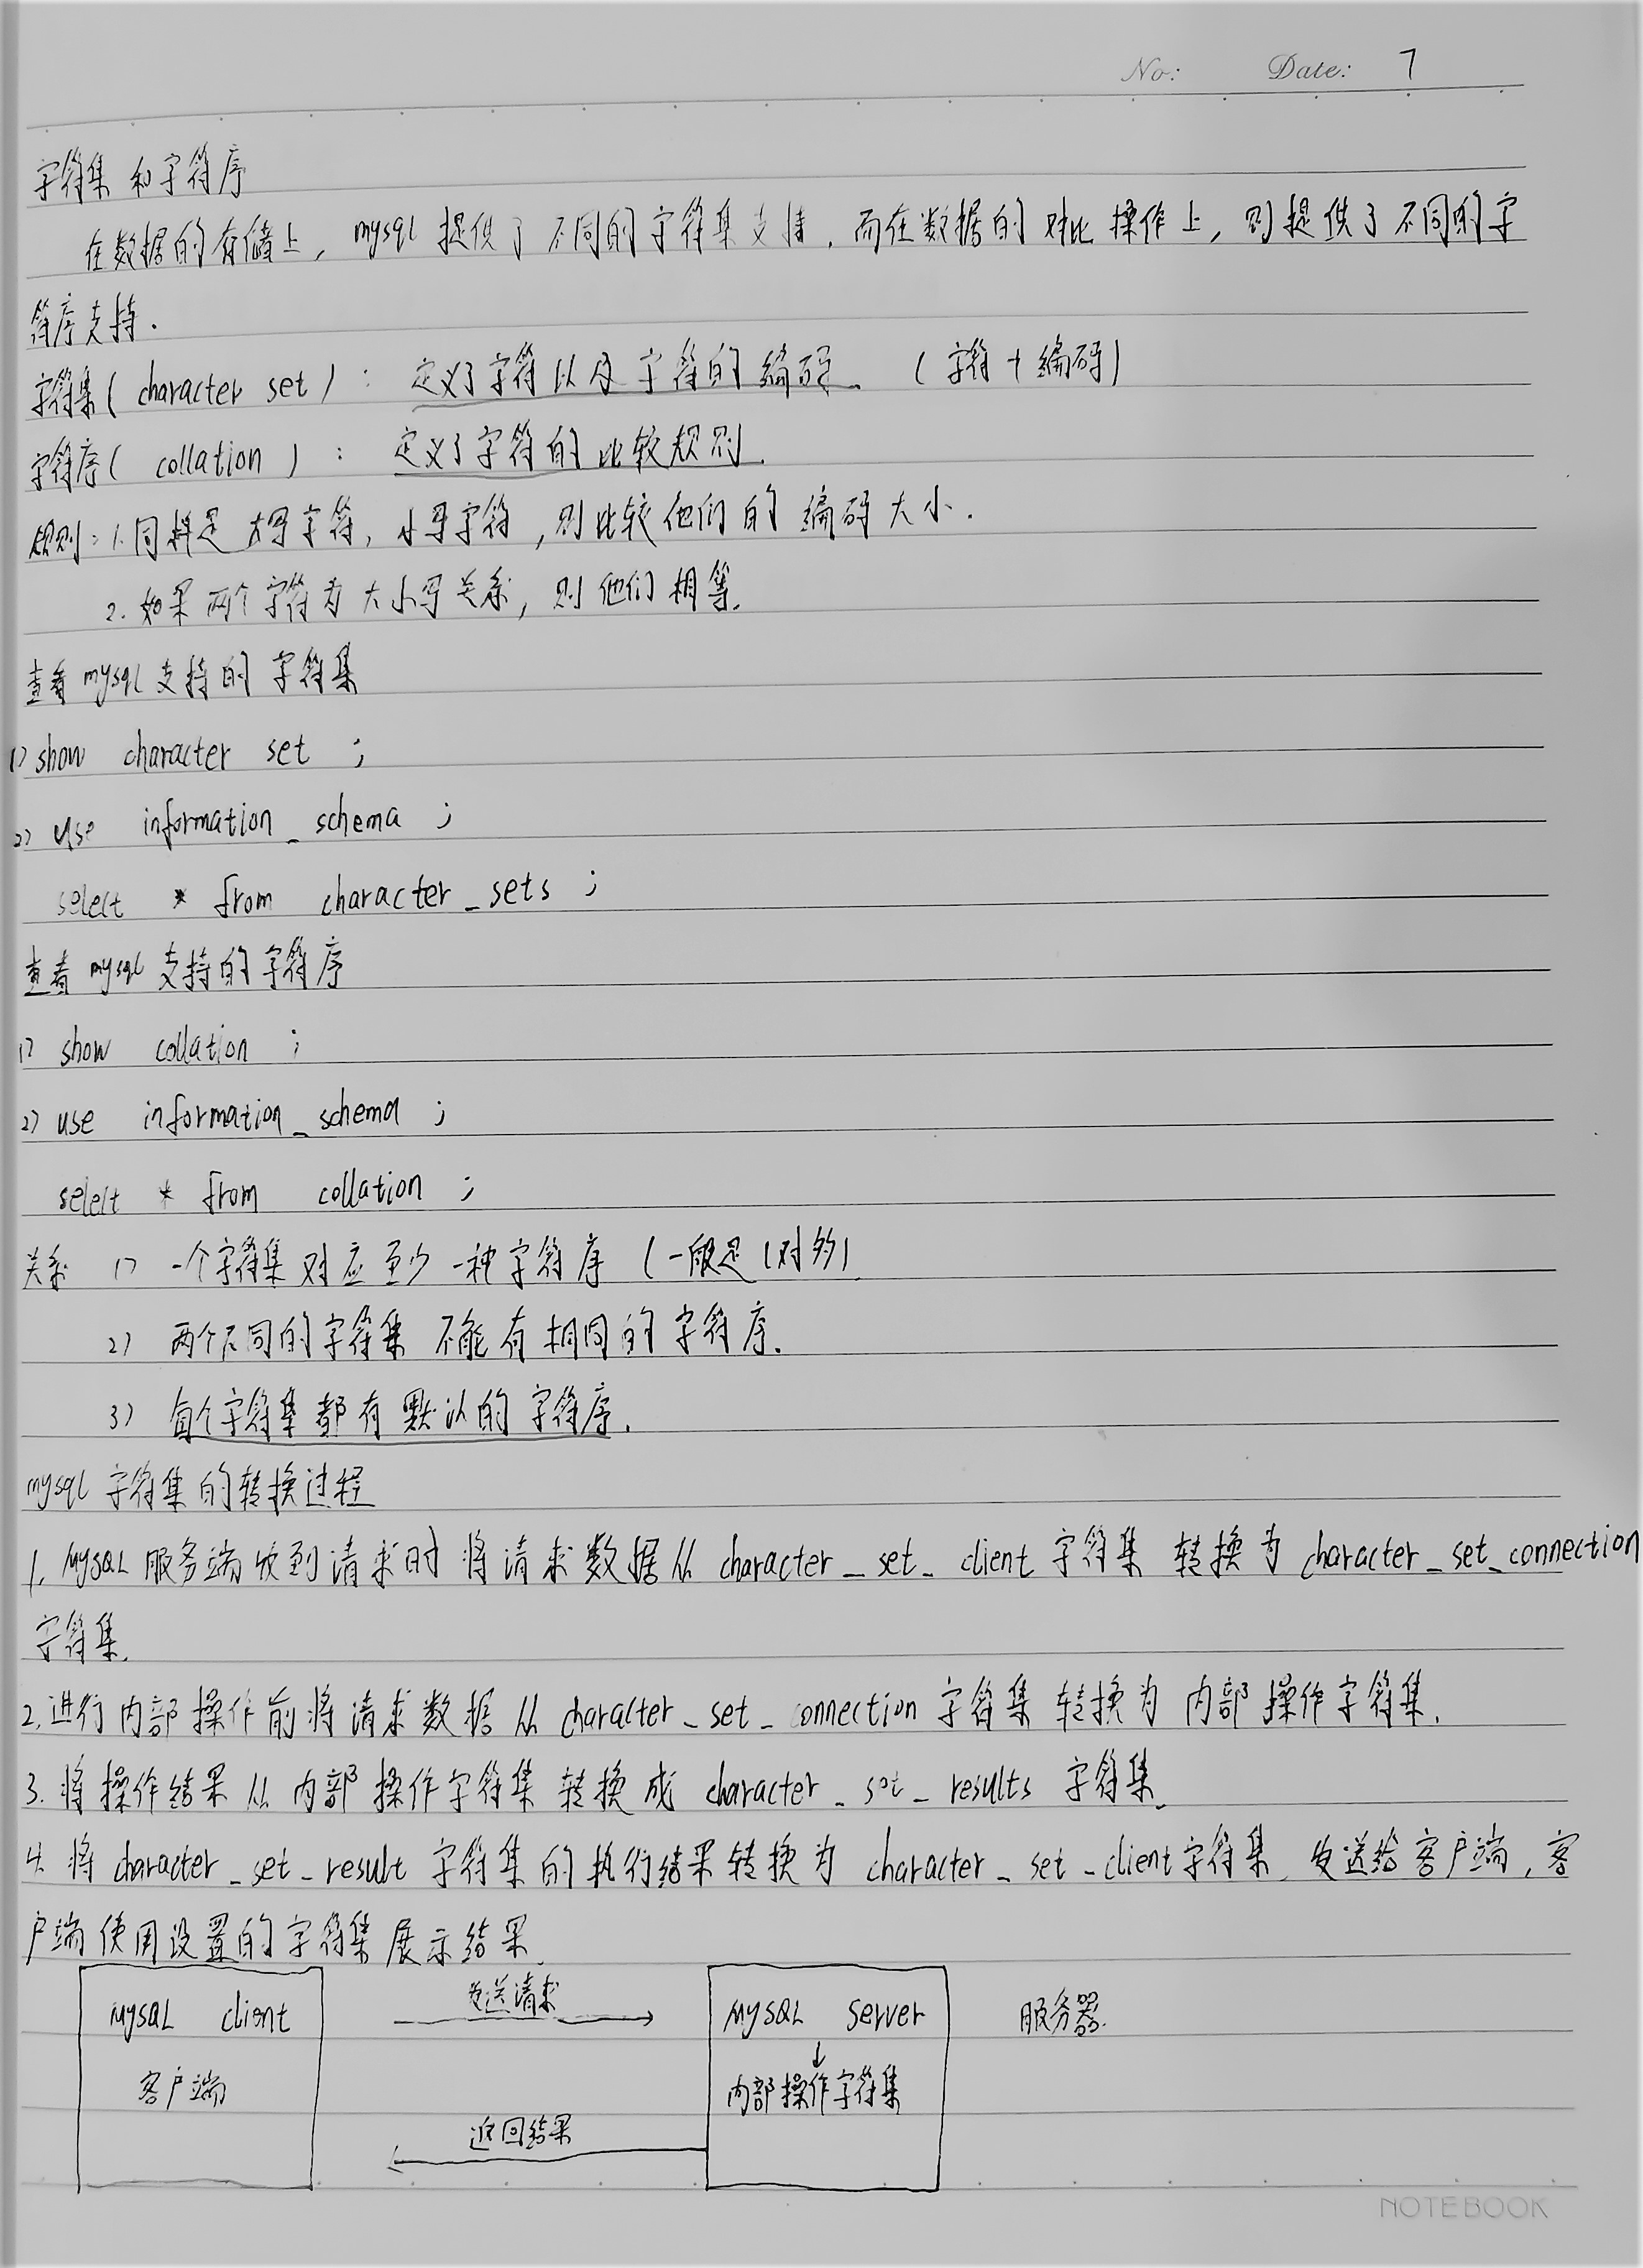 No: Date: 7
字符集和字符序
在数据的存储上, mysql 提供了不同的字符集支持. 而在数据的对比操作上, 则提供了不同的字
符序支持.
字符集( character set ) : 定义了字符以及字符的编码. (字符+编码)
字符序( collation ) : 定义了字符的比较规则.
规则: 1.同样是大写字符, 小写字符, 则比较他们的编码大小.
2. 如果两个字符为大小写关系, 则他们相等.
查看 mysql 支持的字符集
1) show character set ;
2) use information_schema ;
select * from character_sets ;
查看 mysql 支持的字符序
1) show collation ;
2) use information_schema ;
select * from collation ;
关系 1) 一个字符集对应至少一种字符序 (一般是1对多)
2) 两个不同的字符集不能有相同的字符序.
3) 每个字符集都有默认的字符序.
mysql 字符集的转换过程
1. MySQL 服务端收到请求时将请求数据从 character_set_client 字符集转换为 character_set_connection
字符集.
2.进行内部操作前将请求数据从 character_set_connection 字符集转换为内部操作字符集.
3. 将操作结果从内部操作字符集转换成 character_set_results 字符集.
4. 将 character_set_result 字符集的执行结果转换为 character_set_client字符集, 发送给客户端, 客
户端使用设置的字符集展示结果.
MySQL client 发送请求 MySQL Server 服务器
客户端 内部操作字符集
返回结果
NOTEBOOK